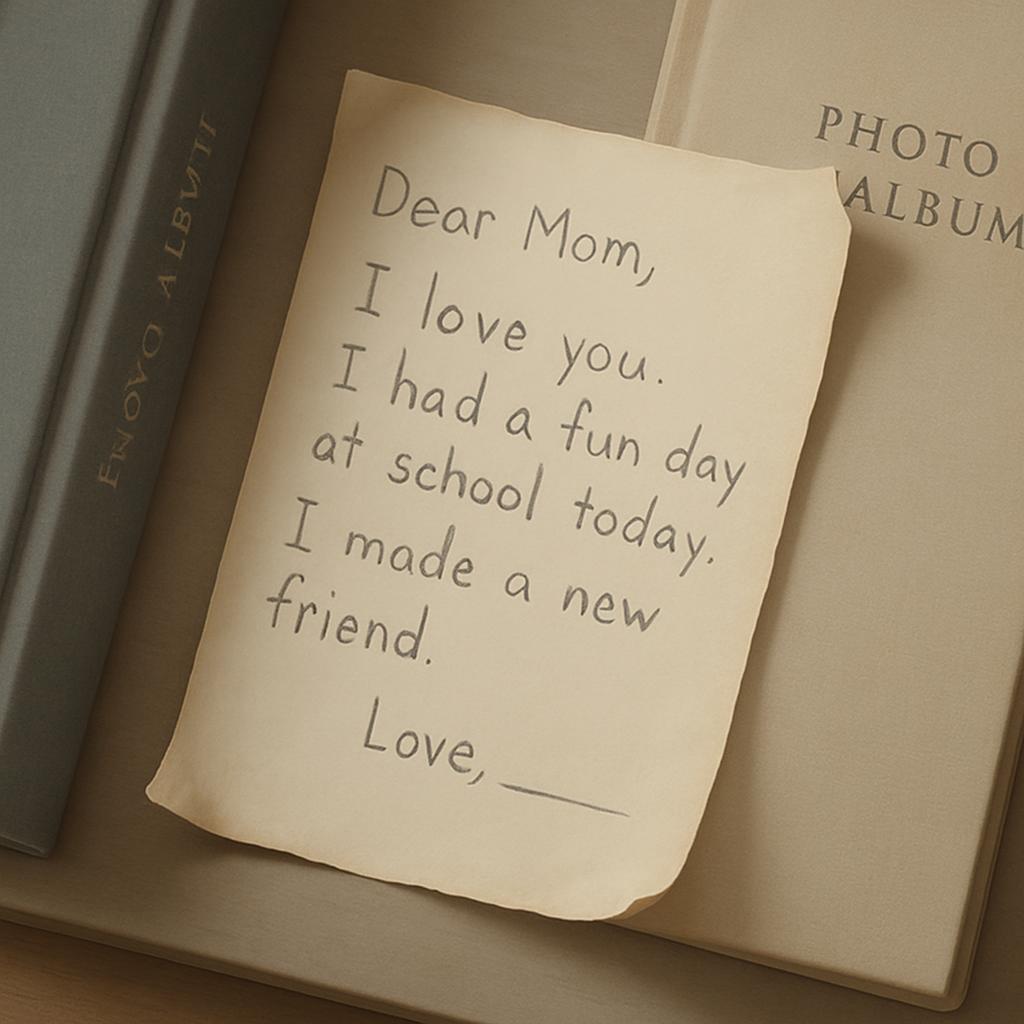 Dear Mom,
I love you.
I had a fun day
at school today.
I made a new
friend.
Love,
PHOTO
ALBUM